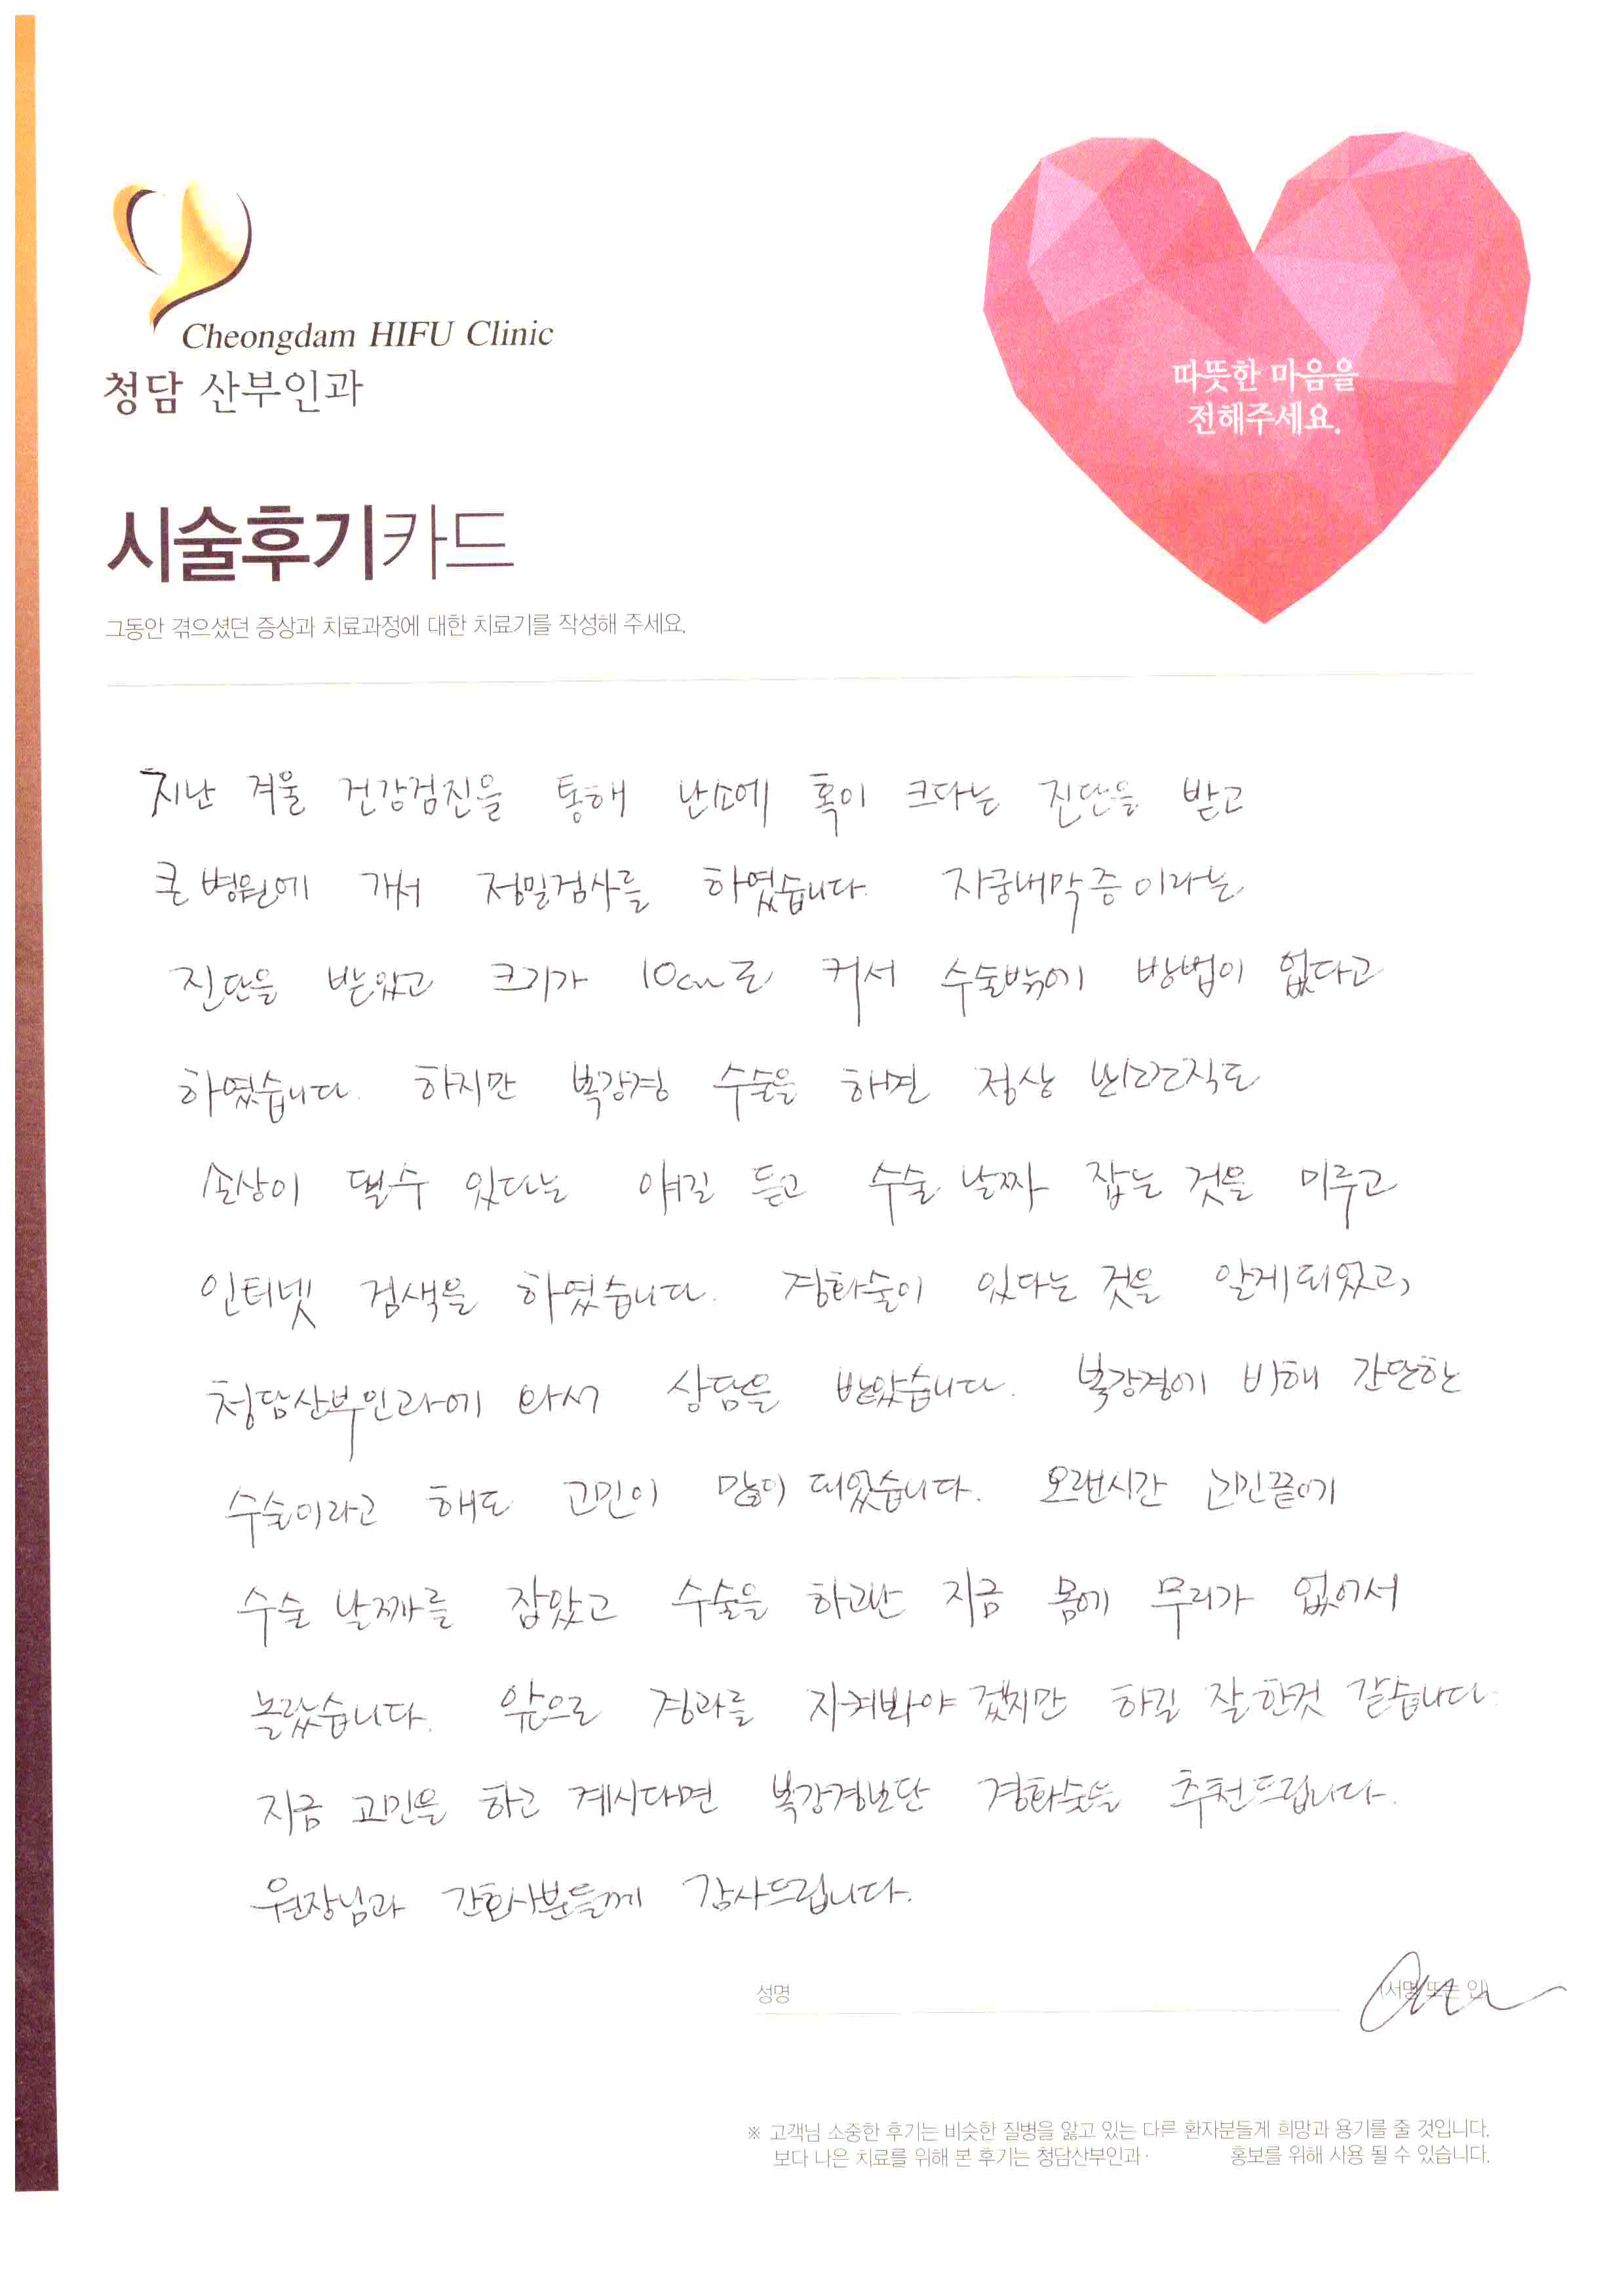 Cheongdam HIFU Clinic
청담 산부인과
따뜻한 마음을
전해주세요.
시술후기카드
그동안 겪으셨던 증상과 치료과정에 대한 치료기를 작성해 주세요.
지난 겨울 건강검진을 통해 난소에 혹이 크다는 진단을 받고
큰 병원에 가서 정밀검사를 하였습니다. 자궁내막증이라는
진단을 받았고 크기가 10cm로 커서 수술밖에 방법이 없다고
하였습니다. 하지만 복강경 수술을 하면 정상
손상이 될수 있다는 얘길 듣고 수술 날짜 잡는 것을 미루고
인터넷 검색을 하였습니다. 경화술이 있다는 것을 알게되었고,
청담산부인과에 와서 상담을 받았습니다. 복강경에 비해 간단한
수술이라고 해도 고민이 많이 되었습니다. 오랜시간 고민끝에
수술 날짜를 잡았고 수술을 하고난 지금 몸에 무리가 없어서
놀랐습니다. 앞으로 경과를 지켜봐야 겠지만 하길 잘한것 같습니다.
지금 고민을 하고 계시다면 복강경보단 경화술을 추천드립니다.
원장님과 간호사분들께 감사드립니다.
성명 (서명 또는 인)
※ 고객님 소중한 후기는 비슷한 질병을 앓고 있는 다른 환자분들게 희망과 용기를 줄 것입니다.
보다 나은 치료를 위해 본 후기는 청담산부인과· 홍보를 위해 사용 될 수 있습니다.